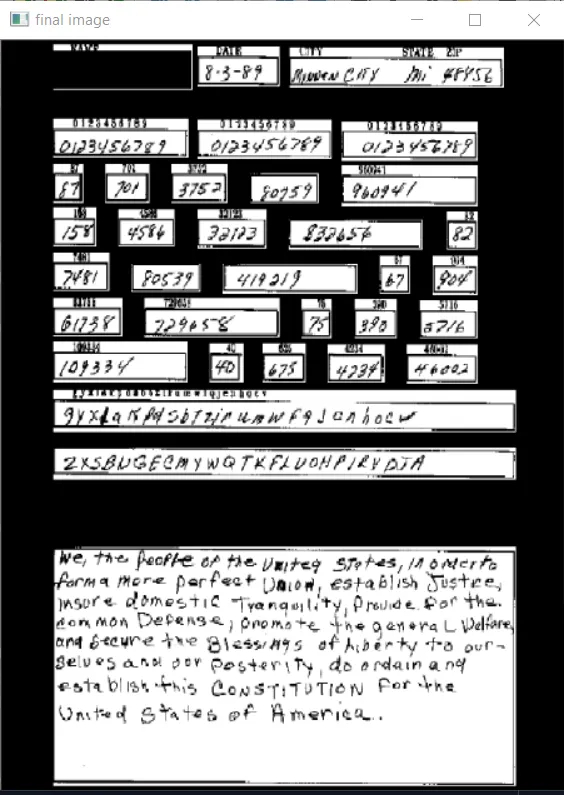 final image
NAME DATE CITY STATE ZIP
8-3-89 MINDEN CITY Mi 48456
0123456789 0123456789 0123456789
0123456789 0123456789 0123456789
87 701 3752 960941
87 701 3752 80759 960941
158 4586 32123 82
158 4586 32123 832656 82
7481 67 904
7481 80539 419219 67 904
61738 729658 75 390 5716
61738 729658 75 390 5716
109334 40 675 4234 46002
109334 40 675 4234 46002
gyxlakpdsbtzirumwfqjenhocv
ZXSBNGECMYWQTKFLUOHPIRVDJA
We, the People of the United States, in order to
form a more perfect Union, establish Justice,
insure domestic Tranquility, provide for the
common Defense, promote the general Welfare,
and secure the Blessings of Liberty to our-
selves and our posterity, do ordain and
establish this CONSTITUTION for the
United States of America.